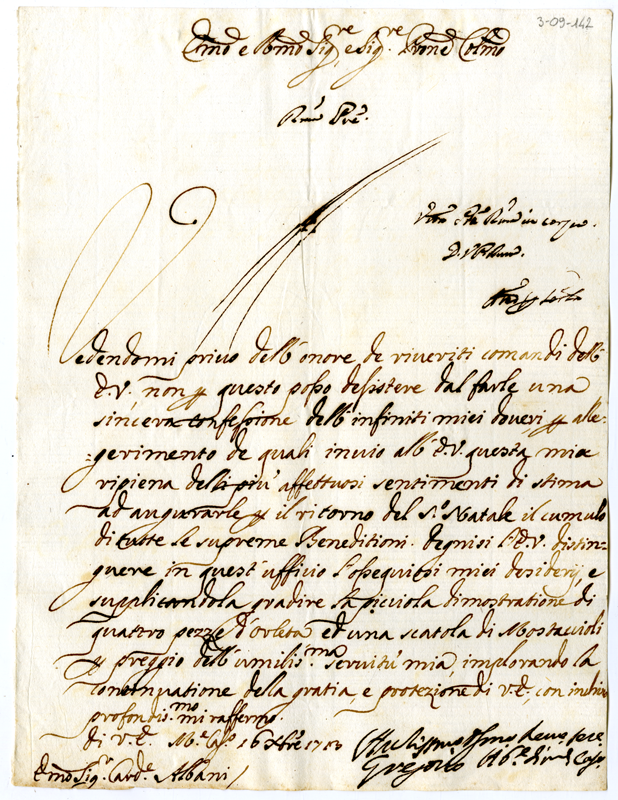 3-09-142
Emo e Rmo Sigre e Sigre Prone Colmo
Vedendomi privo dell'onore de riveriti comandi dell'
E.V. non p questo posso desistere dal farle una
sincera confessione dell'infiniti miei doveri p alle-
gerimento de quali invio all'E.V. questa mia
ripiena delli più affettuosi sentimenti di stima
ad augurarle p il ritorno del So Natale il cumulo
di tutte le supreme Beneditioni. Degnisi l'E.V. distin-
guere in quest'uffitio l'ossequiosi miei desiderij, e
supplicandola gradire la picciola dimostratione di
quattro pezze d'orleta ed una scatola di Mostaccioli
p preggio dell'umilisma servitù mia, implorando la
continuatione della gratia, e protezione di V.E., con inchino
profondismo mi raffermo.
di V.E. Me Caso 16 Xbre 1703
Emo Sigr Carde Albani
Gregorio